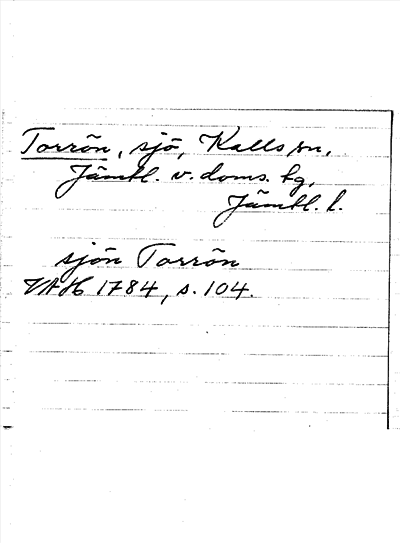 Torrön, sjö, Kalls sn,
Jämtl. v. doms. hg,
Jämtl. l.
sjön Torrön
VAH 1784, s. 104.